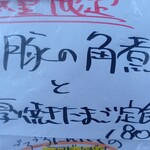 限定
豚の角煮
と
厚焼きたまご定食
680